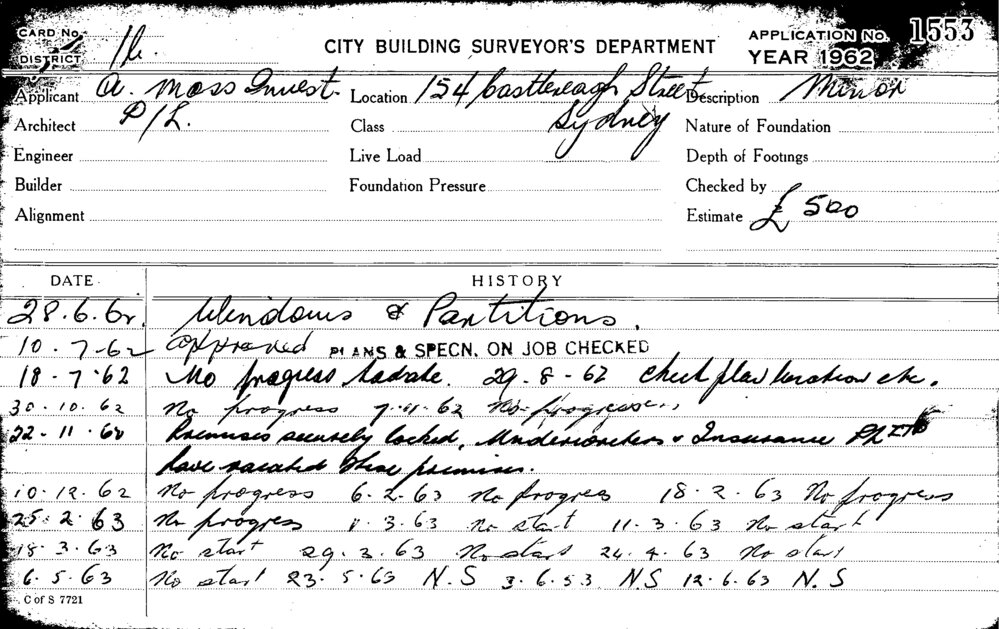 CARD No. CITY BUILDING SURVEYOR'S DEPARTMENT APPLICATION No. 1553
DISTRICT YEAR 1962
Applicant A. Moss Invest. Location 154 Castlereagh Street Description Minor
Architect P/L. Class Sydney Nature of Foundation
Engineer Live Load Depth of Footings
Builder Foundation Pressure Checked by
Alignment Estimate £ 500
DATE. HISTORY
28.6.62. Windows & Partitions.
10.7-62 approved PLANS & SPECN. ON JOB CHECKED
18-7-62 No progress to date. 29-8-62 Check plan location etc.
30.10.62 No progress 7.11.62 No progress
22-11-62 Premises securely locked, Underwriters & Insurance P/L LTD
have vacated these premises.
10.12.62 No progress 6.2.63 No progress 18.2.63 No progress
25.2.63 No progress 1.3.63 No start 11.3.63 No start
18.3.63 No start 29.3.63 No start 24.4.63 No start
6.5.63 No start 23.5.63 N.S 3.6.53 N.S 12.6.63 N.S
C of S 7721